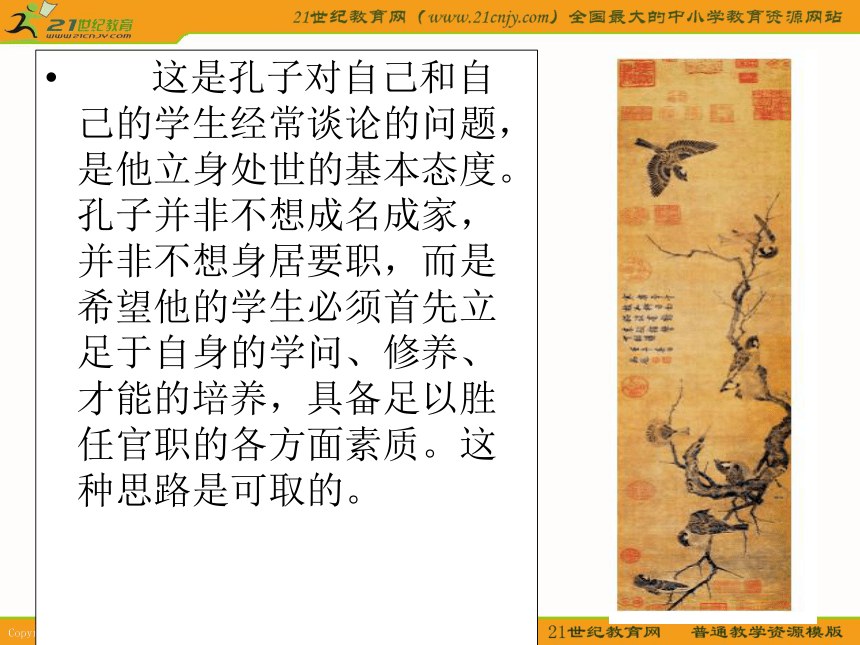 21世纪教育
www.21cnjy.com
21世纪教育网（www.21cnjy.com）全国最大的中小学教育资源网站
• 这是孔子对自己和自
己的学生经常谈论的问题，
是他立身处世的基本态度。
孔子并非不想成名成家，
并非不想身居要职，而是
希望他的学生必须首先立
足于自身的学问、修养、
才能的培养，具备足以胜
任官职的各方面素质。这
种思路是可取的。
Copyr
21世纪教育网 普通教学资源模版